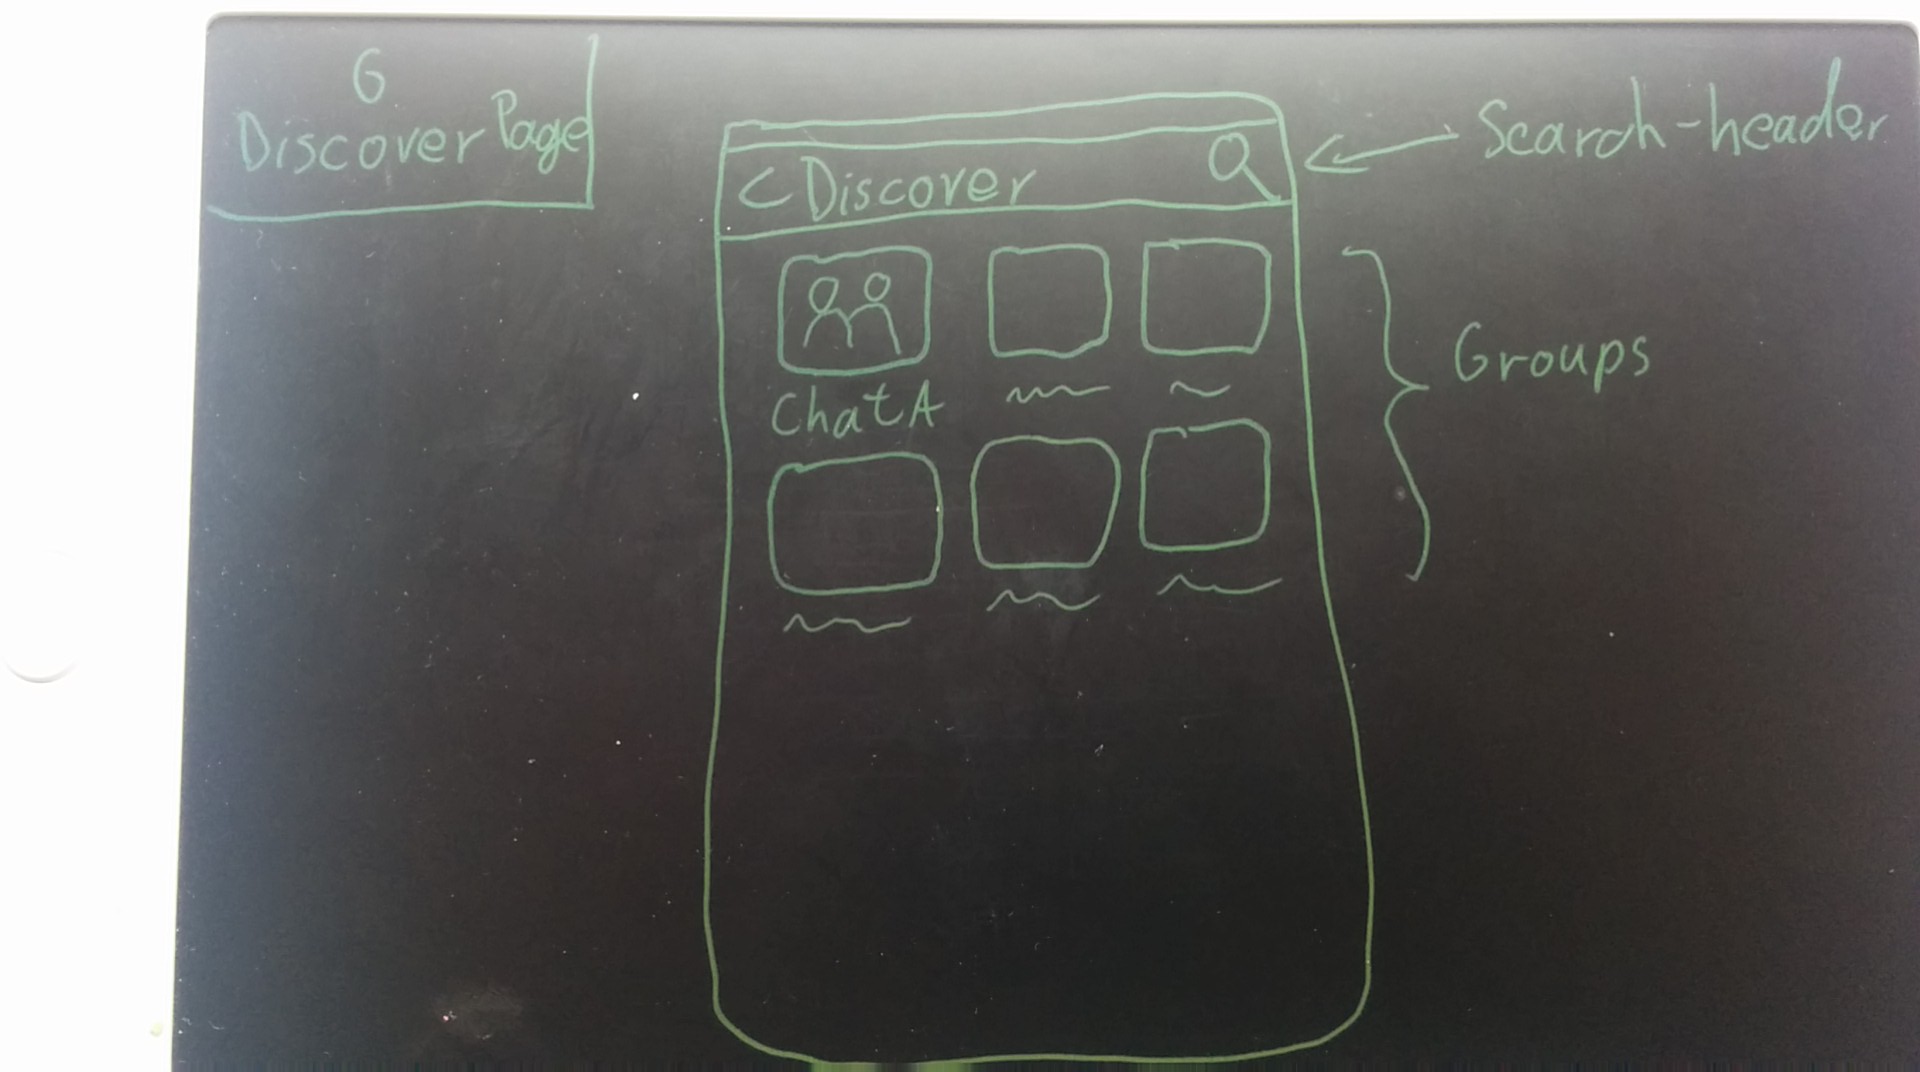 6
Discover Page
< Discover
Search-header
Chat A
Groups